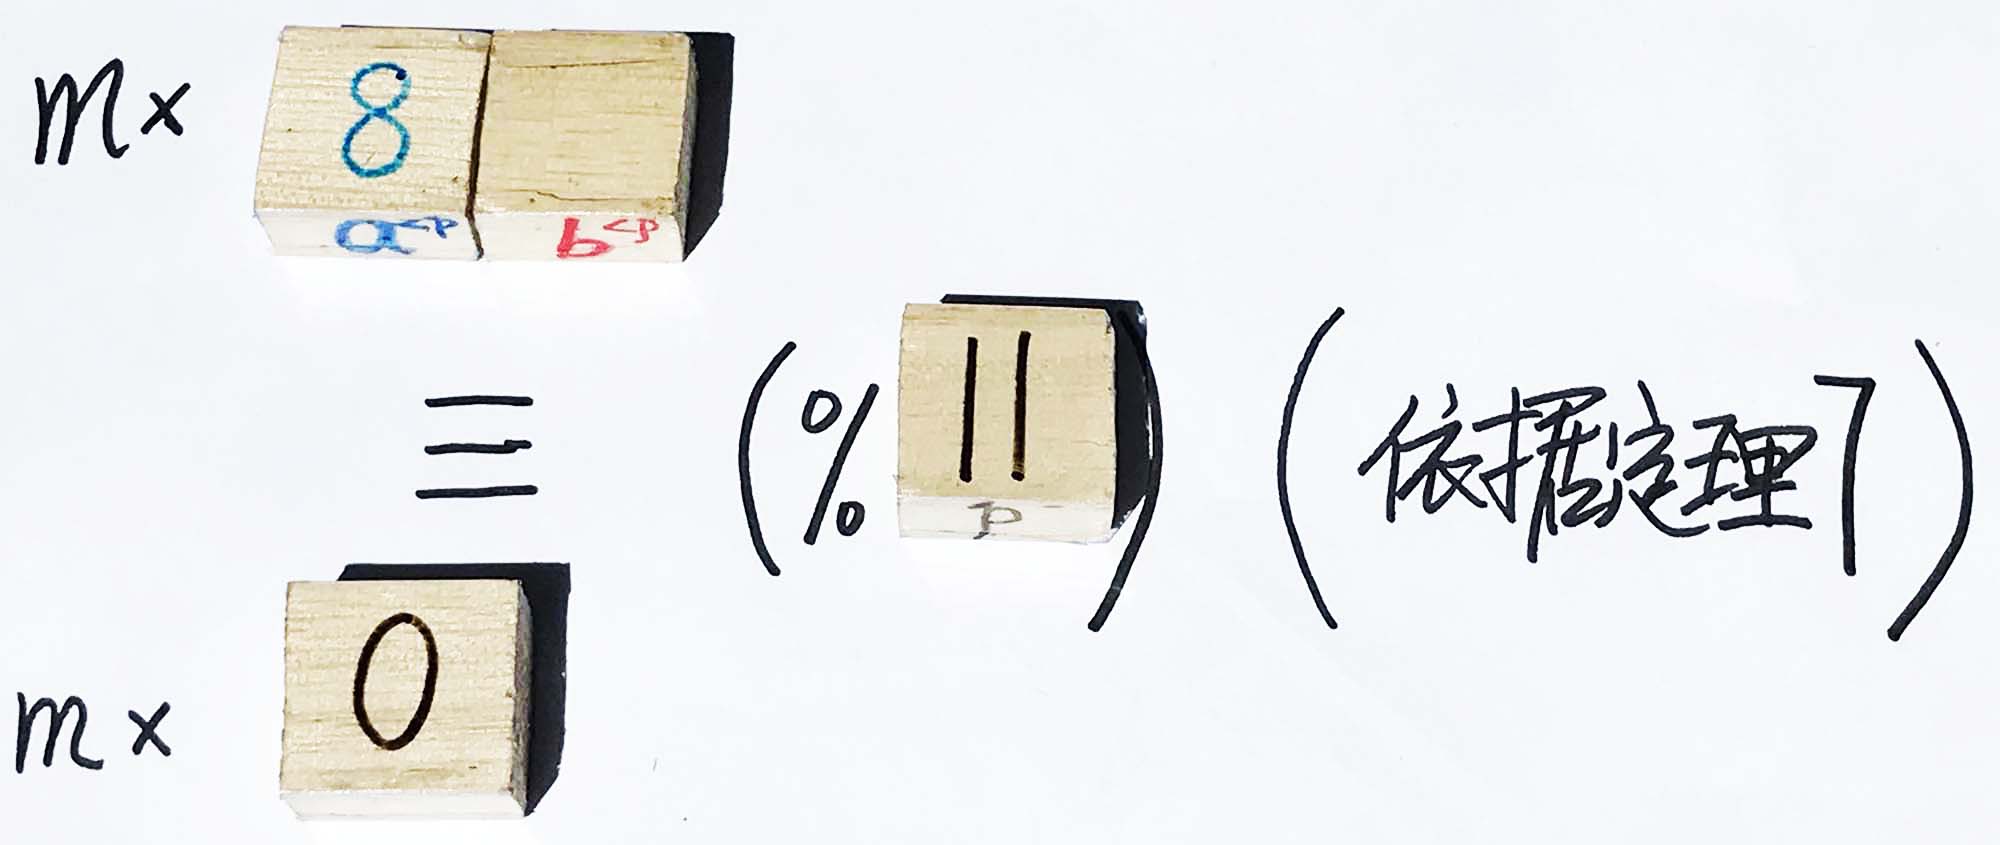 m× 8
a<p b<p
≡ (% 11) (依据定理7)
p
m× 0